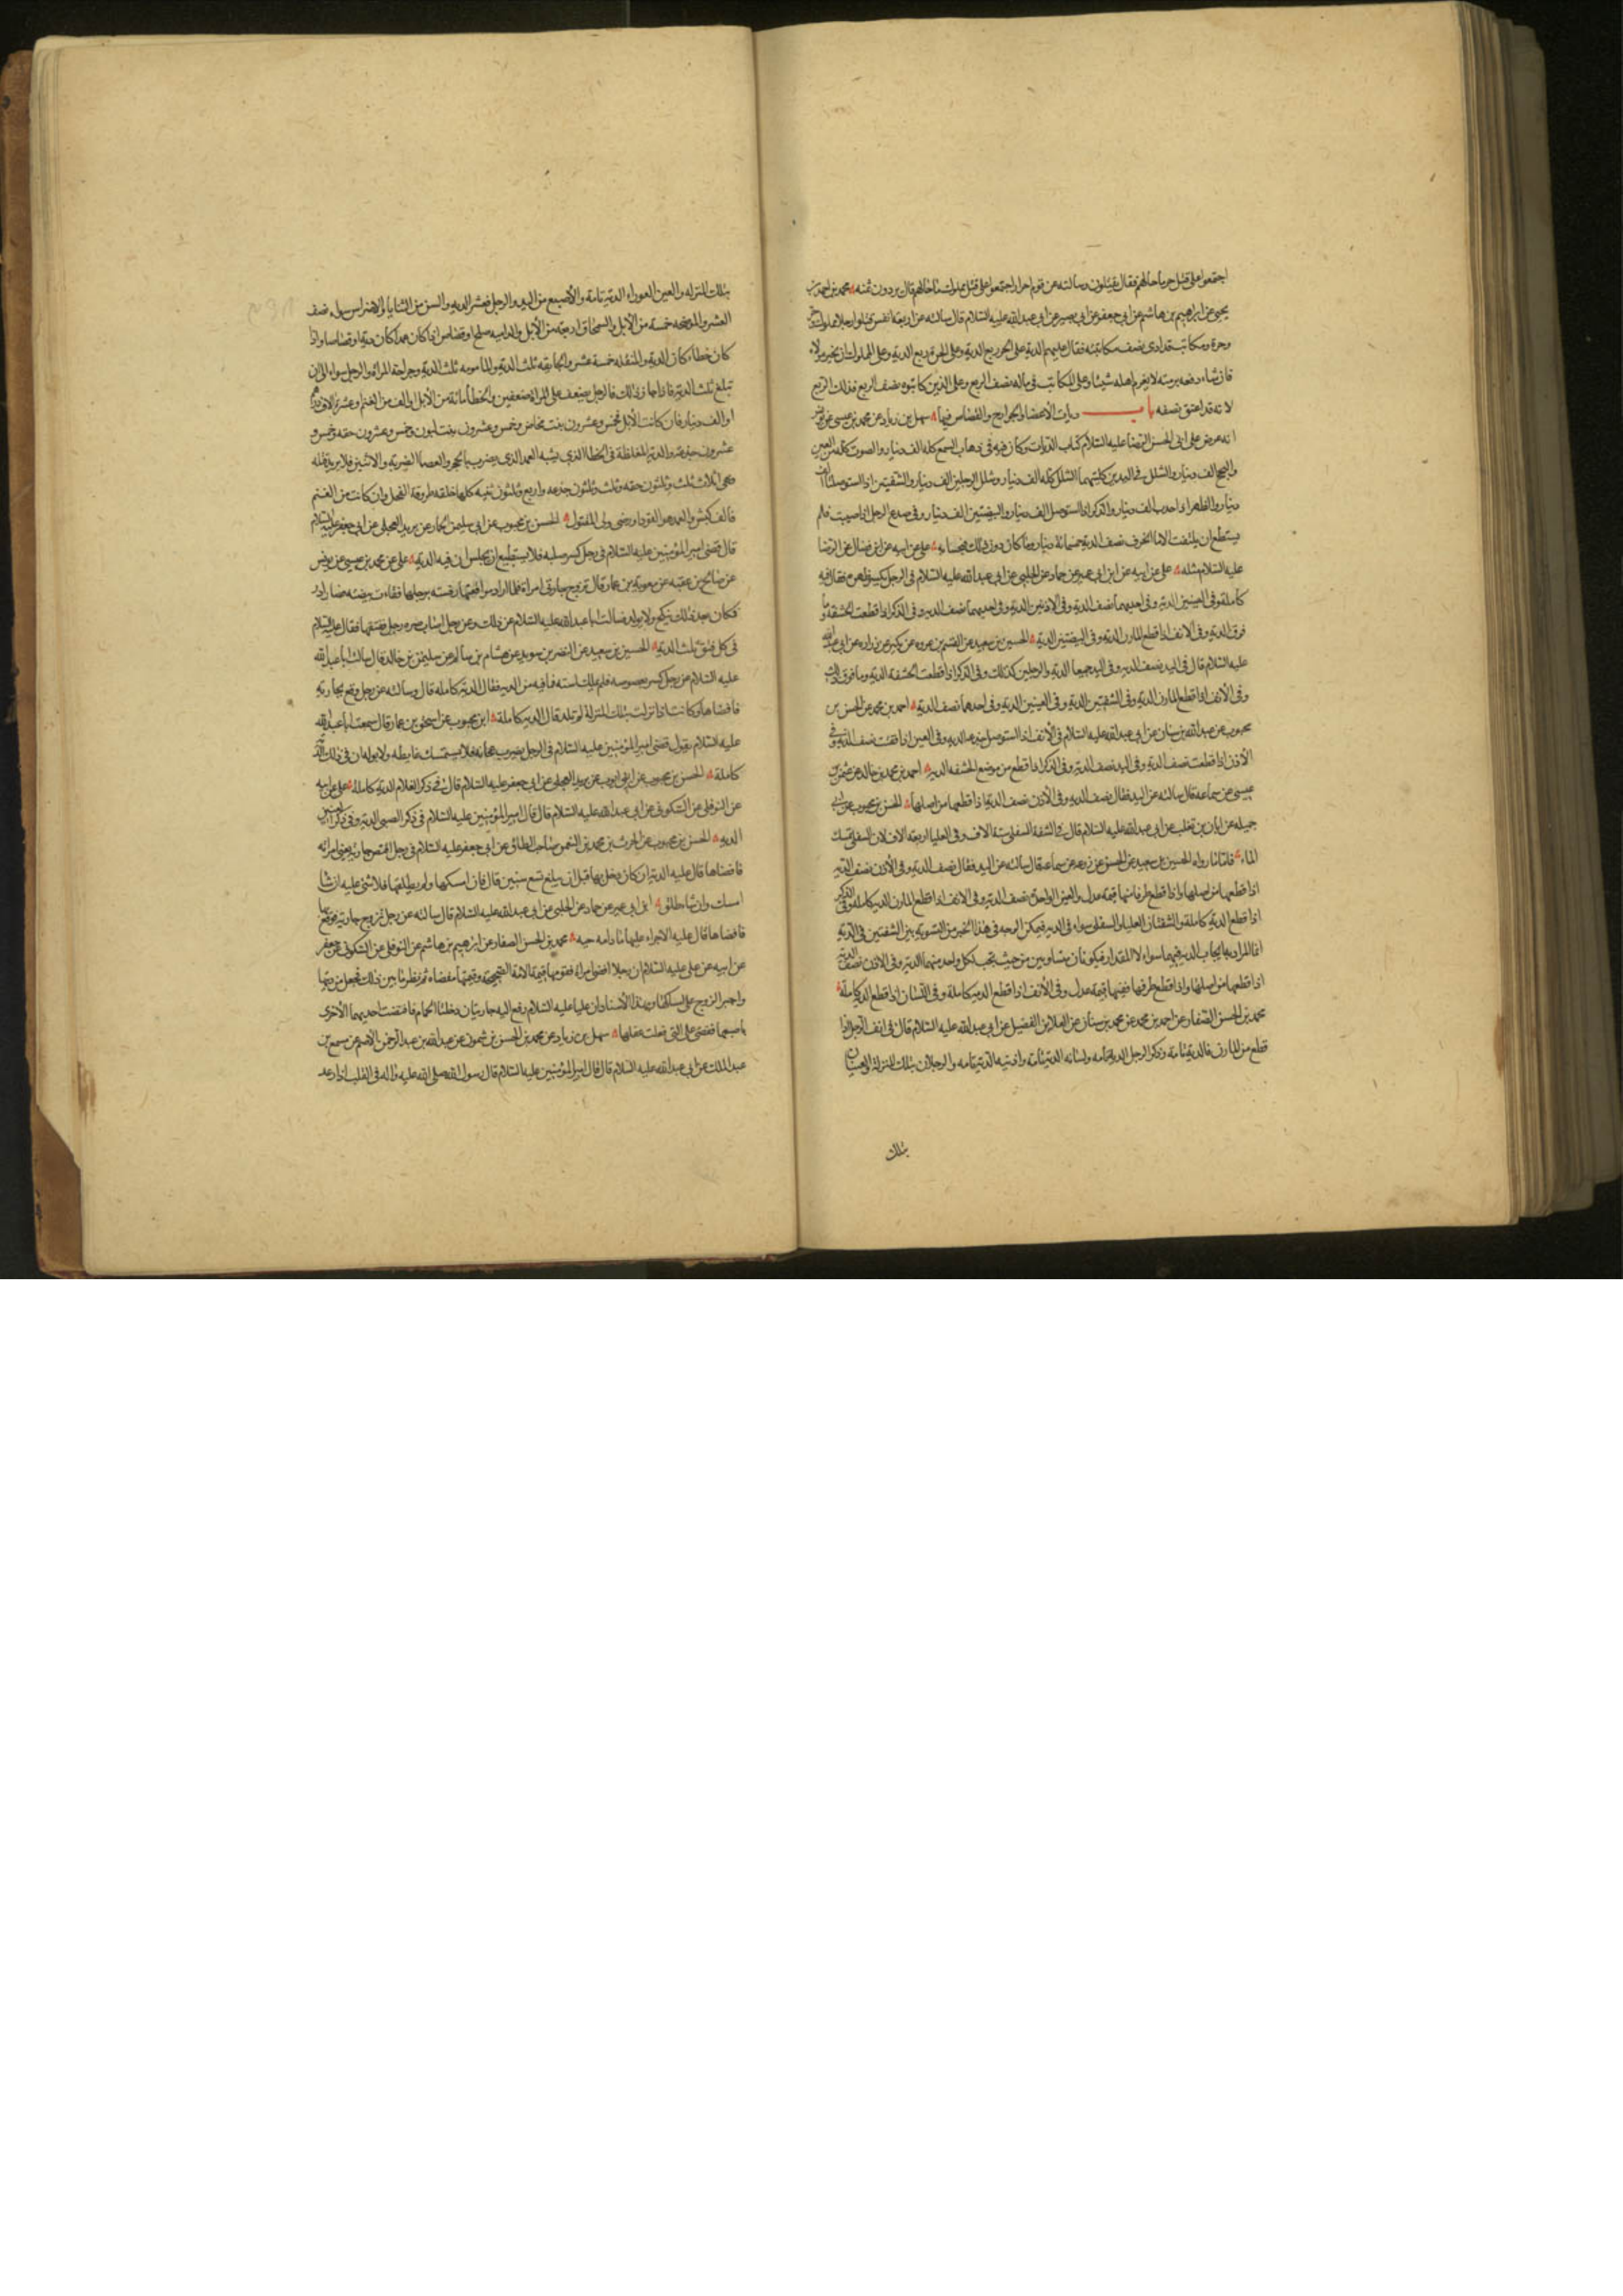 اجتمعوا على قتل حر ما حالهم فقال يقتلون وسالته عن قوم احرار اجتمعوا على قتل مملوك ما حالهم قال يردون ثمنه محمد بن احمد بن
يحيى عن ابرهيم بن هاشم عن ابي جعفر عن ابي بصير عن ابي عبد الله عليه السلام قال سالته عن اربعة انفس قتلوا رجلا مملوك وحر
وحرة ومكاتب قد ادى نصف مكاتبته فقال عليهم الدية على الحر ربع الدية وعلى الحرة ربع الدية وعلى المملوك ان يخير مولاه
فان شاء دفعه برمته لا يغرم اهله شيئا وعلى المكاتب في ماله نصف الربع وعلى الذين كاتبوه نصف الربع فذلك الربع
لانه قد اعتق نصفه باب ديات الاعضا والجوارح والقصاص فيها سهل بن زياد عن محمد بن عيسى عن يونس
انه عرض على ابي الحسن الرضا عليه السلام كتاب الديات وكان فيه في ذهاب السمع كله الف دينار والصوت كله من الغنن
والبحح الف دينار والشلل في اليدين كلتيهما الشلل كله الف دينار وشلل الرجلين الف دينار والشفتين اذا استوصلتا الف
دينار والظهر اذا احدب الف دينار والذكر اذا استوصل الف دينار والبيضتين الف دينار وفي صدغ الرجل اذا اصيب فلم
يستطع ان يلتفت الا ما انحرف نصف الدية خمسمائة دينار وما كان دون ذلك فبحسابه علي عن ابيه عن ابن فضال عن الرضا
عليه السلام مثله علي عن ابيه عن ابن ابي عمير عن حماد عن الحلبي عن ابي عبد الله عليه السلام في الرجل يكسر ظهره فقال فيه
كاملة وفي العينين الدية وفي احديهما نصف الدية وفي الاذنين الدية وفي احديهما نصف الدية وفي الذكر اذا قطعت الحشفة وما
فوق الدية وفي الانف اذا قطع المارن الدية وفي البيضتين الدية الحسين بن سعيد عن القسم بن عروه عن بكير عن زراره عن ابي عبد الله
عليه السلام قال في اليد نصف الدية وفي اليد جميعا الدية والرجلين كذلك وفي الذكر اذا قطعت الحشفة الدية وما فوق ذلك
وفي الانف اذا قطع المارن الدية وفي الشفتين الدية وفي العينين الدية وفي احدهما نصف الدية احمد بن محمد عن الحسن بن
محبوب عن عبد الله بن سنان عن ابي عبد الله عليه السلام في الانف اذا استوصل جدعا الدية وفي العين اذا فقئت نصف الدية وفي
الاذن اذا قطعت نصف الدية وفي اليد نصف الدية وفي الذكر اذا قطع من موضع الحشفة الدية احمد بن محمد بن خالد عن عثمن بن
عيسى عن سماعه قال سالته عن اليد فقال نصف الدية وفي الاذن نصف الدية اذا قطعها من اصلها الحسن بن محبوب عن ابي
جميله عن ابان بن تغلب عن ابي عبد الله عليه السلام قال في الشفة السفلى ستة الاف وفي العليا اربعة الاف لان السفلى تمسك
الماء فاما ما رواه الحسين بن سعيد عن الحسن عن زرعه عن سماعه قال سالته عن اليد فقال نصف الدية وفي الاذن نصف الدية
اذا قطعها من اصلها واذا قطع طرفها ففيها قيمة عدل والعين الواحدة نصف الدية وفي الانف اذا قطع المارن الدية كاملة وفي الذكر
اذا قطع الدية كاملة والشفتان العليا والسفلى سواء في الدية فيمكن الوجه في هذا الخبر من التسوية بين الشفتين في الدية
انما المراد به ايجاب الدية فيهما سواء لا المقدار فيكونان متساويين من حيث يجب لكل واحد منهما الدية وفي الاذن نصف الدية
اذا قطعها من اصلها واذا قطع طرفها ففيها قيمة عدل وفي الانف اذا قطع الدية كاملة وفي اللسان اذا قطع الدية كاملة
محمد بن الحسن الصفار عن احمد بن محمد عن محمد بن سنان عن العلا بن الفضيل عن ابي عبد الله عليه السلام قال في انف الرجل اذا
قطع من المارن فالدية تامة وذكر الرجل الدية تامه ولسانه الدية تامة واذنيه الدية تامه والرجلان بتلك المنزلة والعينان
بتلك
بتلك المنزله والعين العوراء الدية تامة والاصبع من اليد والرجل فعشر الدية والسن من الثنايا والاضراس سواء نصف
العشر والموضحه خمسة من الابل والسمحاق اربعة من الابل والداميه صلح او قصاص اذا كان عمدا كان دية او قصاصا واذا
كان خطاء كان الدية والمنقله خمسة عشر والجايفه ثلث الدية والمامومه ثلث الدية وجراحة المراة والرجل سواء الى ان
تبلغ ثلث الدية فاذا جاز ذلك فالرجل يضعف على المراة ضعفين والخطا مائة من الابل او الف من الغنم او عشرة الاف درهم
او الف دينار فان كانت الابل فخمس وعشرون بنت مخاض وخمس وعشرون بنت لبون وخمس وعشرون حقه وخمس و
عشرون جذعة والدية المغلظة في الخطا الذي يشبه العمد الذي يضرب بالحجر والعصا الضربة والاثنين فلا يريد قتله
فهي اثلاث ثلث وثلثون حقه وثلث وثلثون جذعه واربع وثلثون ثنيه كلها خلفه طروقة الفحل وان كانت من الغنم
فالف كبش والعمد هو القود او رضى ولي المقتول الحسن بن محبوب عن ابي سليمن الحمار عن بريد العجلي عن ابي جعفر عليه السلام
قال قضى امير المؤمنين عليه السلام في رجل كسر صلبه فلا يستطيع ان يجلس ان فيه الدية علي عن محمد بن عيسى عن يونس
عن صالح بن عقبه عن معوية بن عمار قال تزوج جار لي امراة فلما اراد مواقعتها رفسته برجلها ففقات بيضته فصار ادر
فكان بعد ذلك ينكح ولا يولد فسالت ابا عبد الله عليه السلام عن ذلك وعن رجل اصاب سره رجل ففتقها فقال عليه السلام
في كل فتق ثلث الدية الحسين بن سعيد عن النضر بن سويد عن هشام بن سالم عن سليمن بن خالد قال سالت ابا عبد الله
عليه السلام عن رجل كسر بعصوصه فلم يملك استه فما فيه من الدية فقال الدية كامله قال وسالته عن رجل وقع بجارية
فافضاها وكانت اذا نزلت بتلك المنزلة لم تلد قال الدية كاملة ابن محبوب عن اسحق بن عمار قال سمعت ابا عبد الله
عليه السلام يقول قضى امير المؤمنين عليه السلام في الرجل يضرب على عجانه فلا يستمسك غايطه ولا بوله ان في ذلك الدية
كاملة الحسن بن محبوب عن ابي ايوب عن بريد العجلي عن ابي جعفر عليه السلام قال في ذكر الغلام الدية كاملة علي عن ابيه
عن النوفلي عن السكوني عن ابي عبد الله عليه السلام قال قال امير المؤمنين عليه السلام في ذكر الصبي الدية وفي ذكر العنين
الدية الحسن بن محبوب عن الحرث بن محمد بن النعمن صاحب الطاق عن ابي جعفر عليه السلام في رجل افتض جارية يعني امراته
فافضاها قال عليه الدية ان كان دخل بها قبل ان يبلغ تسع سنين قال فان امسكها ولم يطلقها فلا شئ عليه ان شا
امسك وان شا طلق ابن ابي عمير عن حماد عن الحلبي عن ابي عبد الله عليه السلام قال سالته عن رجل تزوج جارية فوقع بها
فافضاها قال عليه الاجراء عليها ما دامت حيه محمد بن الحسن الصفار عن ابرهيم بن هاشم عن النوفلي عن السكوني عن جعفر
عن ابيه عن علي عليه السلام ان رجلا افضى امراة فقومها قيمة الامة الصحيحة وقيمتها مفضاة ثم نظر ما بين ذلك فجعل من ديتها
واجبر الزوج على امساكها وبهذا الاسناد ان عليا عليه السلام رفع اليه جاريتان دخلتا الحمام فافتضت احديهما الاخرى
باصبعها فقضى على التي فعلت عقلها سهل بن زياد عن محمد بن الحسن بن شمون عن عبد الله بن عبد الرحمن الاصم عن مسمع بن
عبد الملك عن ابي عبد الله عليه السلام قال قال امير المؤمنين عليه السلام قال رسول الله صلى الله عليه واله في القلب اذا رعد